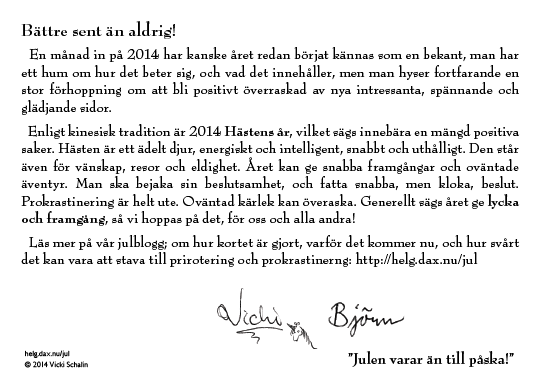 Bättre sent än aldrig!
En månad in på 2014 har kanske året redan börjat kännas som en bekant, man har
ett hum om hur det beter sig, och vad det innehåller, men man hyser fortfarande en
stor förhoppning om att bli positivt överraskad av nya intressanta, spännande och
glädjande sidor.
Enligt kinesisk tradition är 2014 Hästens år, vilket sägs innebära en mängd positiva
saker. Hästen är ett ädelt djur, energiskt och intelligent, snabbt och uthålligt. Den står
även för vänskap, resor och eldighet. Året kan ge snabba framgångar och oväntade
äventyr. Man ska bejaka sin beslutsamhet, och fatta snabba, men kloka, beslut.
Prokrastinering är helt ute. Oväntad kärlek kan överaska. Generellt sägs året ge lycka
och framgång, så vi hoppas på det, för oss och alla andra!
Läs mer på vår julblogg; om hur kortet är gjort, varför det kommer nu, och hur svårt
det kan vara att stava till prirotering och prokrastinerng: http://helg.dax.nu/jul
Vicki Björn
helg.dax.nu/jul
© 2014 Vicki Schalin
"Julen varar än till påska!"